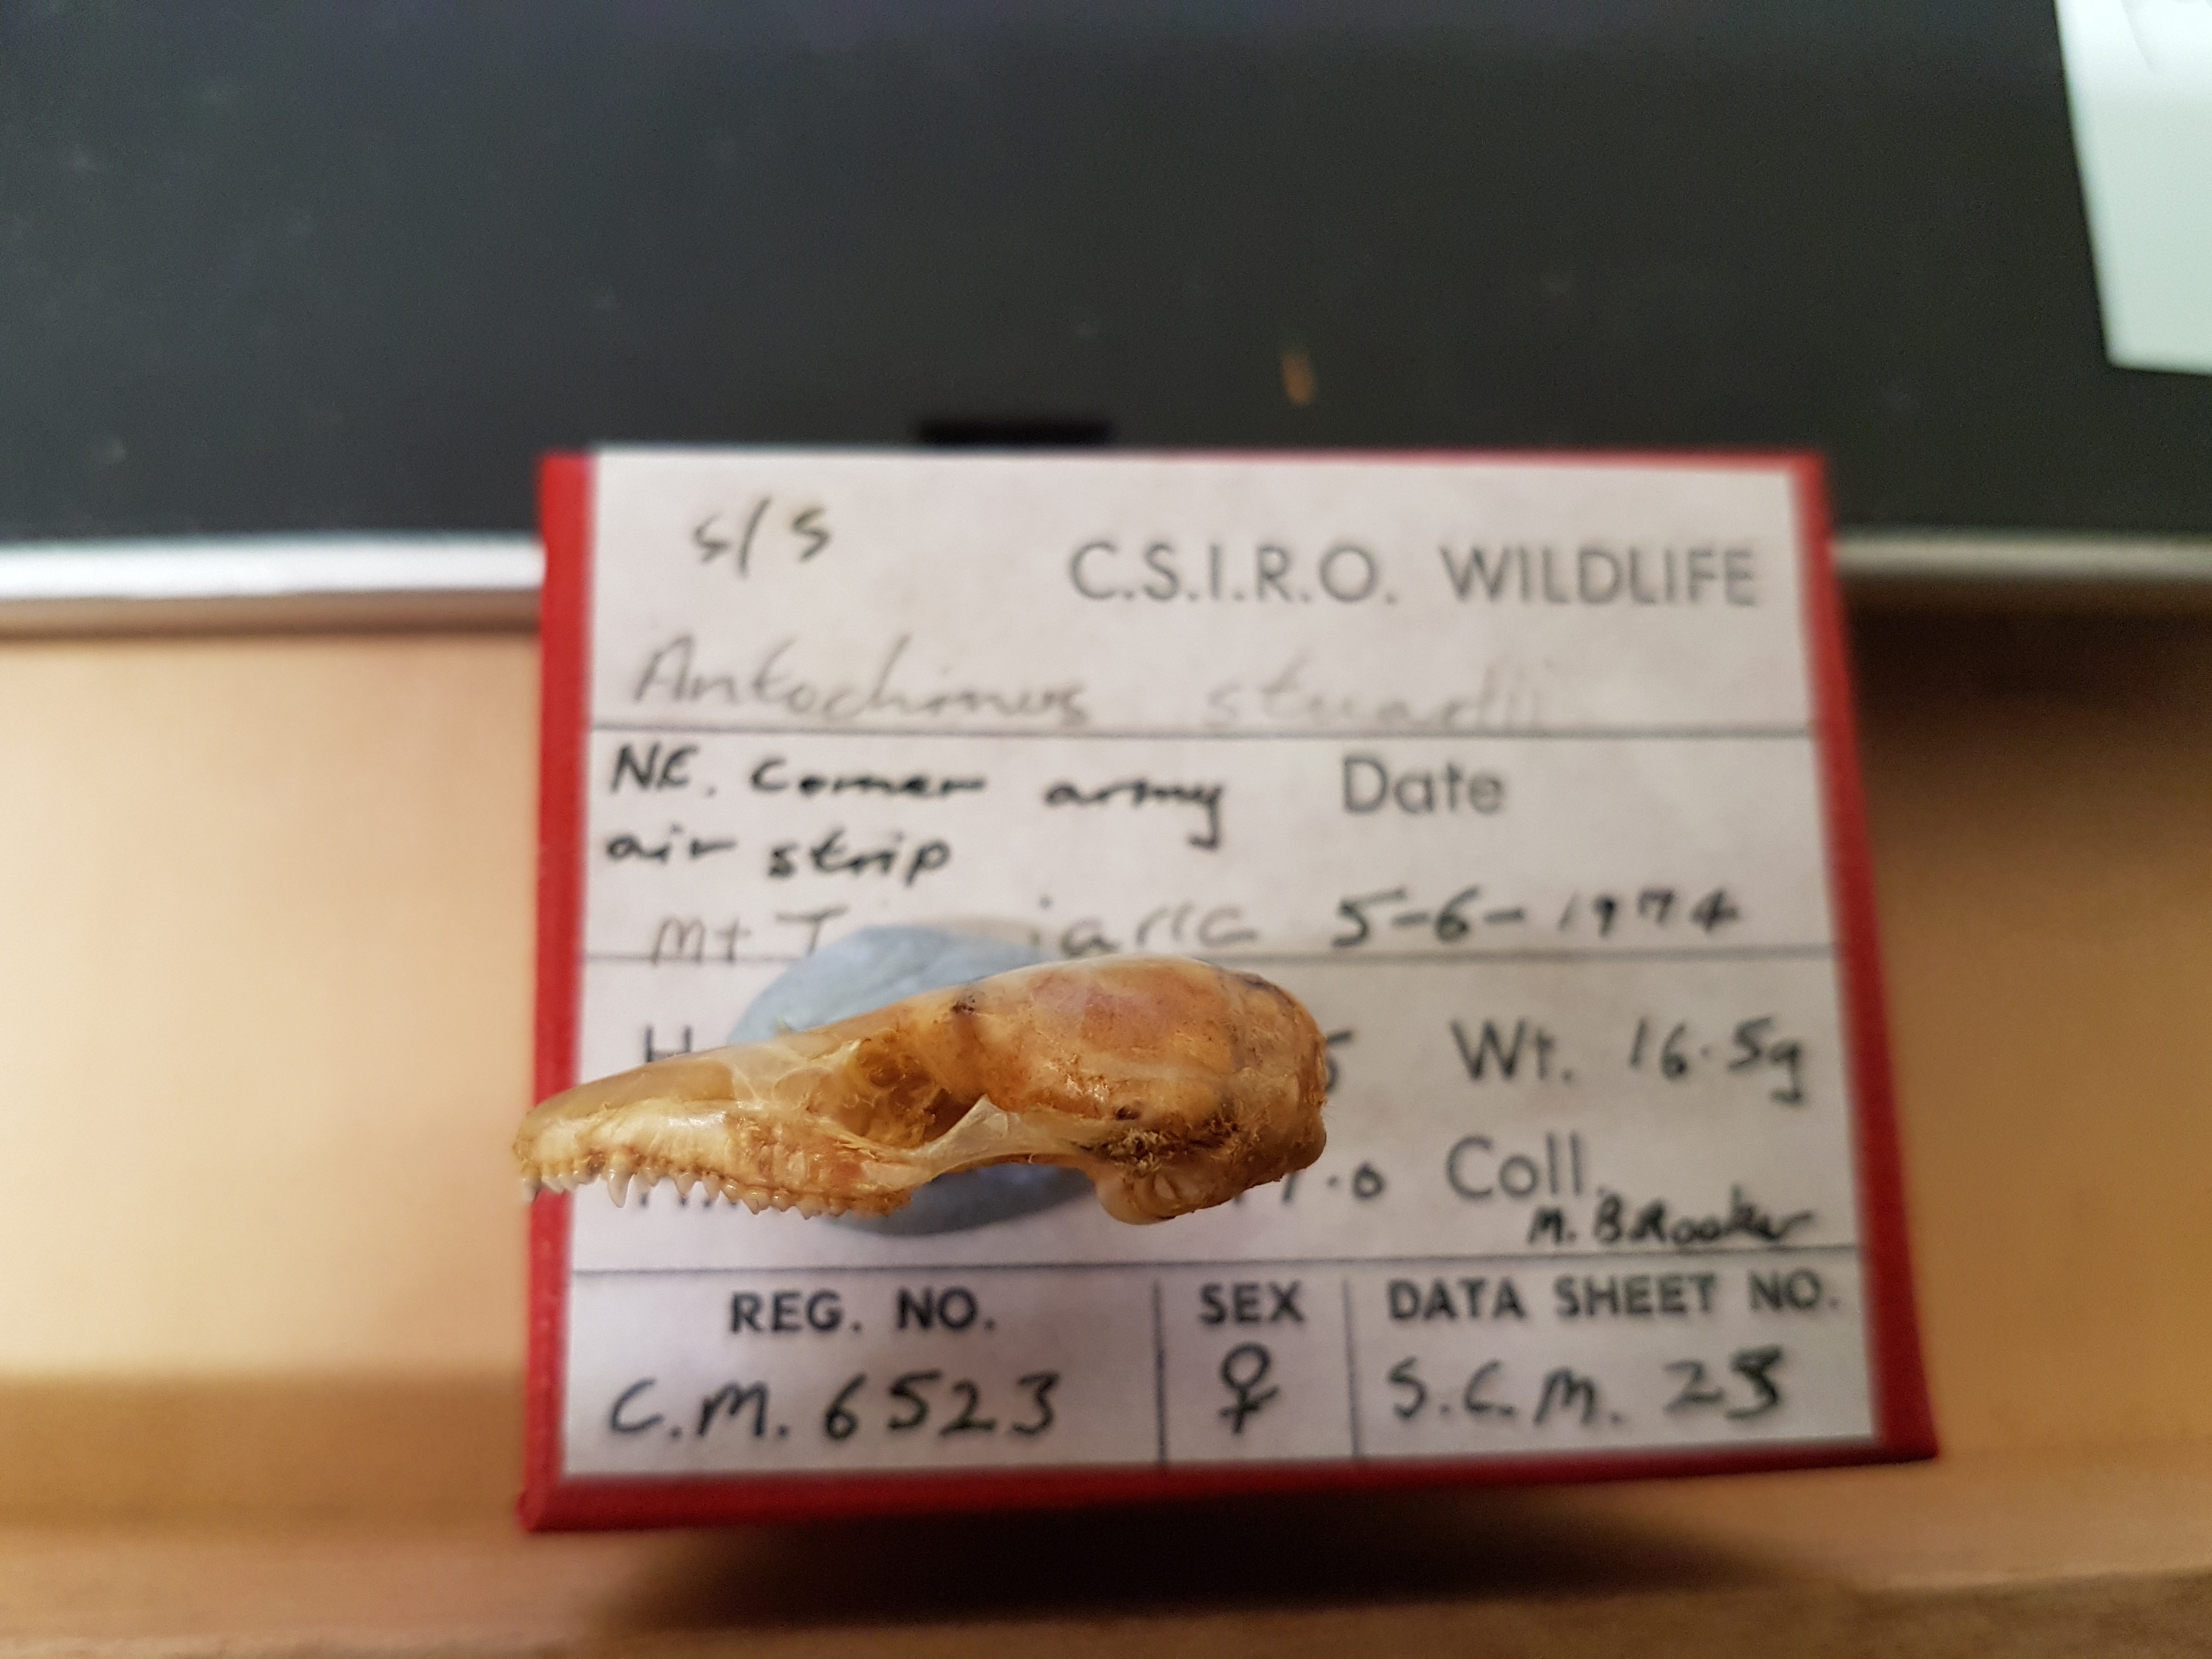 s/s
C.S.I.R.O. WILDLIFE
Antechinus stuartii
N.E. Corner army
air strip
Date
Mt
5-6-1974
H
5 Wt. 16.5g
.0 Coll.
M. BRooker
REG. NO. SEX DATA SHEET NO.
C.M. 6523 ♀ S.C.M. 23